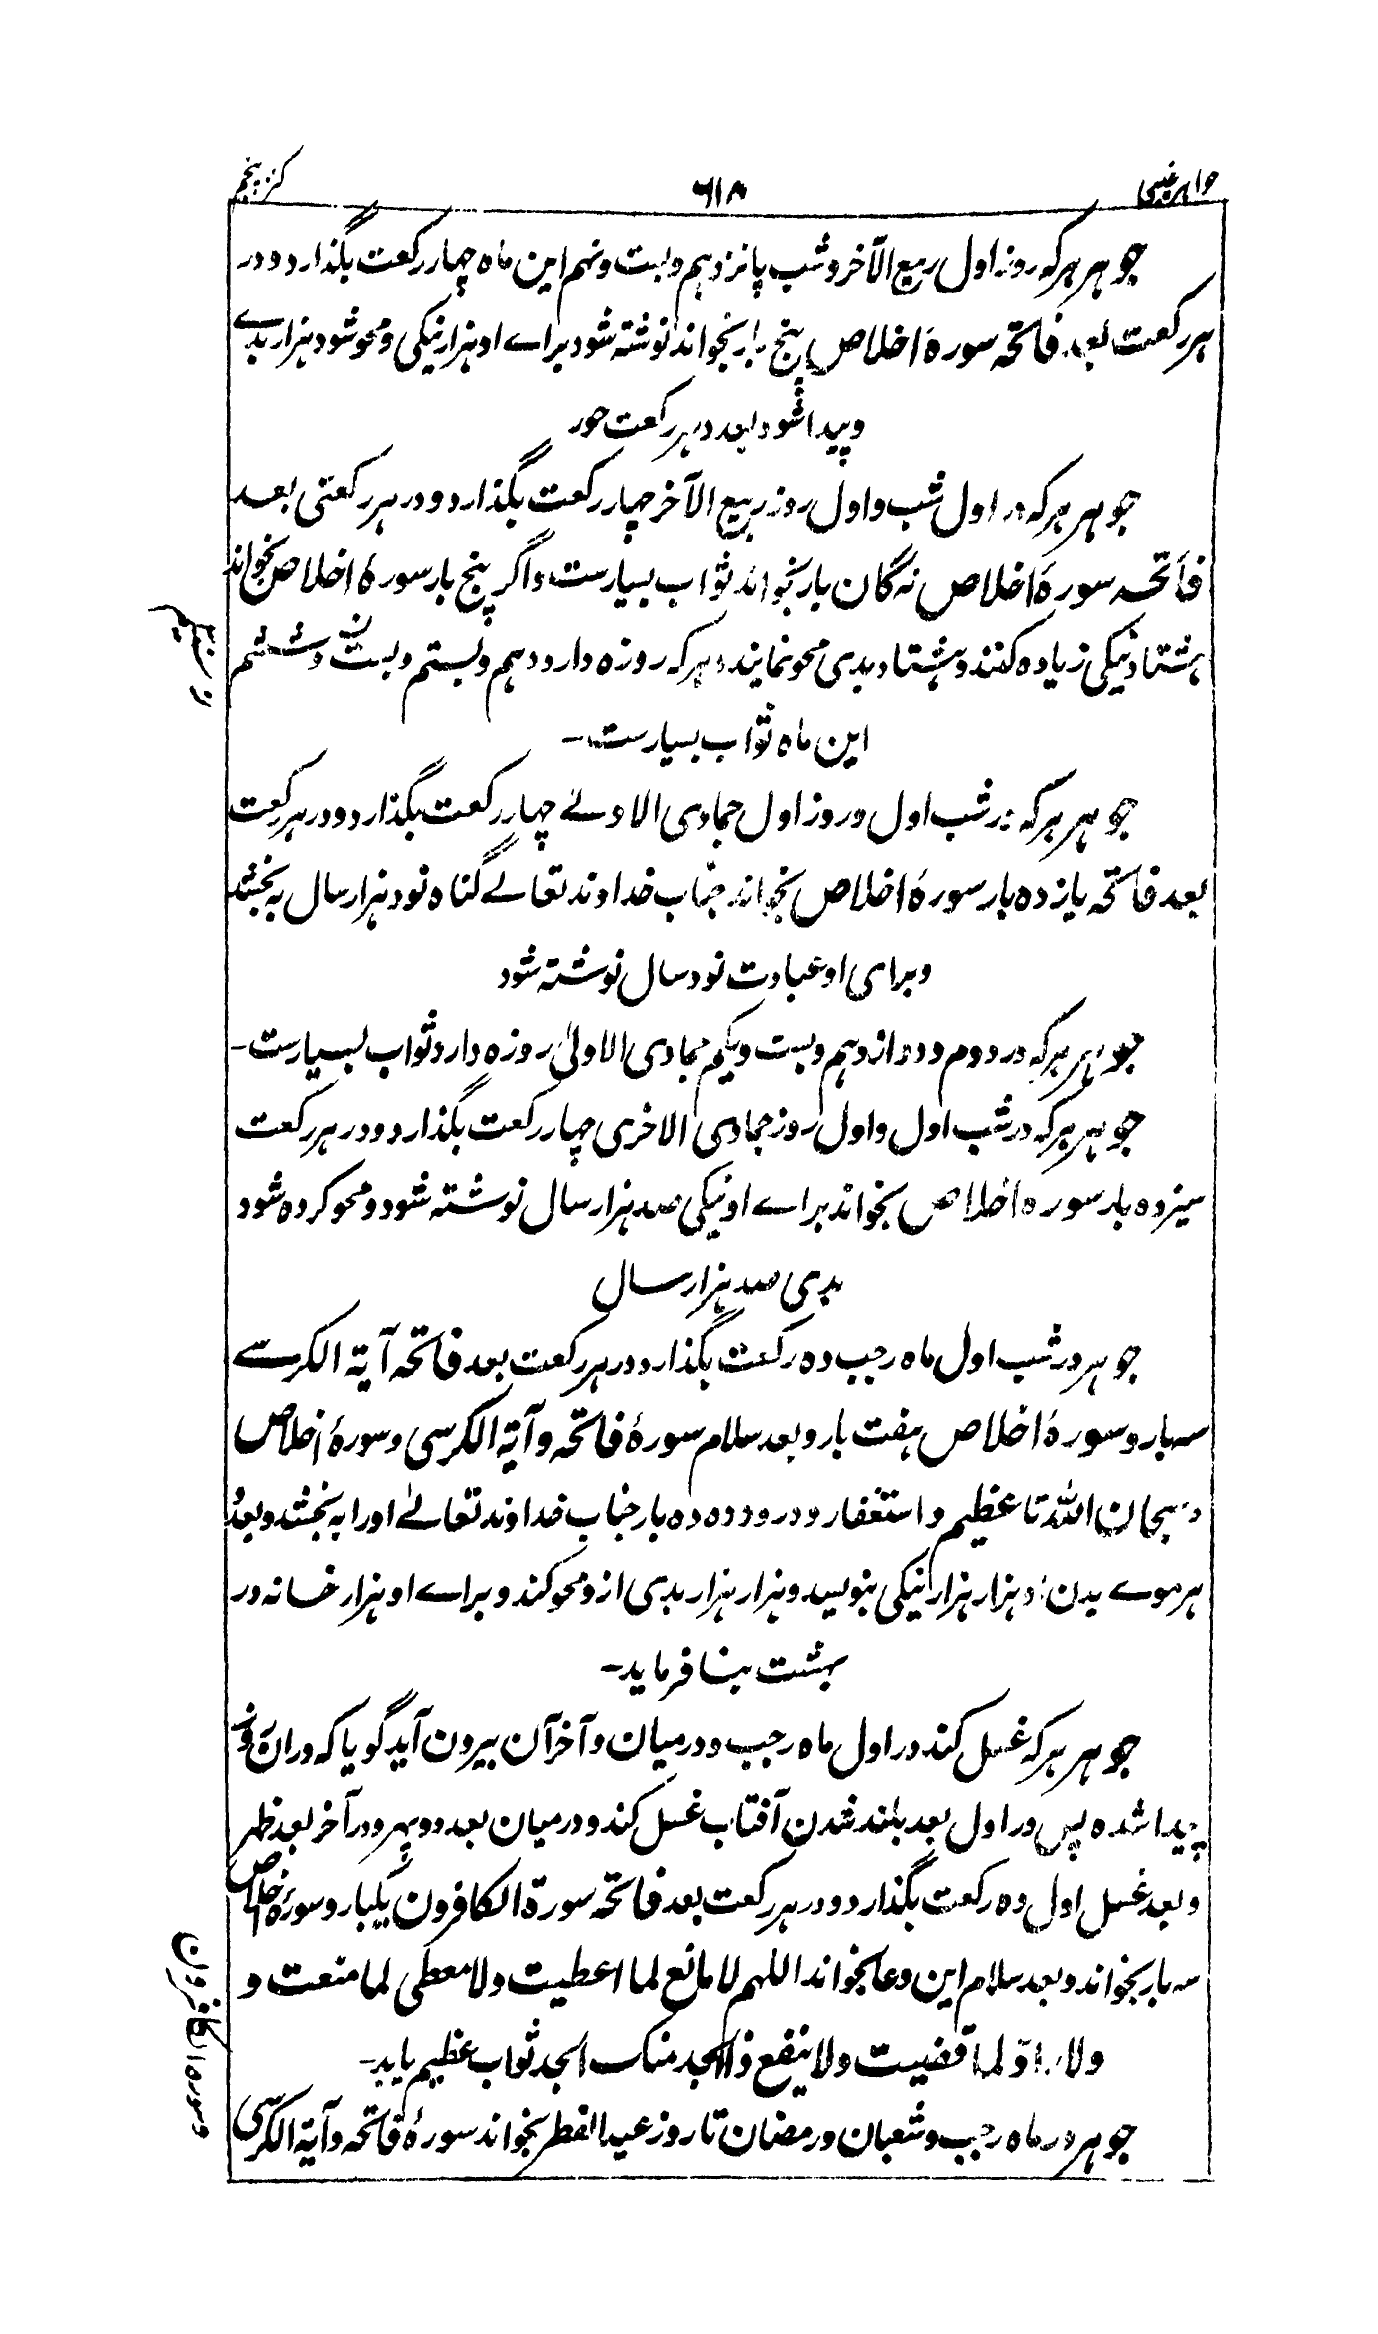 جواهر غیبی
۶۱۸
کنز پنجم
جوهر هرکه روز اول ربیع الآخر و شب پانزدهم و بست و نهم این ماه چهار رکعت بگذارد و در
هر رکعت بعد فاتحه سورهٔ اخلاص پنج بار بخواند نوشته شود براے او هزار نیکی و محو شود هزار بدے
و پیدا شود بعدد هر رکعت حور
جوهر هرکه در اول شب و اول روز ربیع الآخر چهار رکعت بگذارد و در هر رکعتی بعد
فاتحه سورهٔ اخلاص نه گان بار بخواند ثواب بسیارست و اگر پنج بار سورهٔ اخلاص بخواند
هشتاد نیکی زیاده کنند و هشتاد بدی محو نمایند و هرکه روزه دارد دهم و بستم و بست و ششم
این ماه ثواب بسیارست-
جوهر هرکه در شب اول و روز اول جمادی الاولے چهار رکعت بگذارد و در هر رکعت
بعد فاتحه یازده بار سورهٔ اخلاص بخواند جناب خداوند تعالے گناه نود هزار سال به بخشد
و برای او عبادت نود سال نوشته شود
جوهر هرکه در دوم و دوازدهم و بست و یکم جمادی الاولیٰ روزه دارد ثواب بسیارست-
جوهر هرکه در شب اول و اول روز جمادی الاخری چهار رکعت بگذارد و در هر رکعت
سیزده بار سوره اخلاص بخواند براے او نیکی صد هزار سال نوشته شود و محو کرده شود
بدی صد هزار سال
جوهر در شب اول ماه رجب ده رکعت بگذارد و در هر رکعت بعد فاتحه آیة الکرسے
سه بار و سورهٔ اخلاص هفت بار و بعد سلام سورهٔ فاتحه و آیة الکرسی و سورهٔ اخلاص
و سبحان الله تا عظیم و استغفار و درود ده ده بار جناب خداوند تعالےٰ او را به بخشد و بعدد
هر موے بدن او هزار هزار نیکی بنویسد و هزار هزار بدی از و محو کند و براے او هزار خانه در
بهشت بنا فرماید-
جوهر هرکه غسل کند در اول ماه رجب و در میان و آخر آن بیرون آید گویا که در آن روز
پیدا شده پس در اول بعد بلند شدن آفتاب غسل کند و در میان بعد دوپهر و در آخر بعد ظهر
و بعد غسل اول ده رکعت بگذارد و در هر رکعت بعد فاتحه سورة الکافرون یکبار و سورهٔ اخلاص
سه بار بخواند و بعد سلام این دعا بخواند اللهم لا مانع لما اعطیت ولا معطی لما منعت و
ولا رادّ لما قضیت ولا ینفع ذا الجد منک الجد ثواب عظیم یابد-
جوهر در ماه رجب و شعبان و رمضان تا روز عید الفطر بخواند سورهٔ فاتحه و آیة الکرسی
وسوره الکافرون